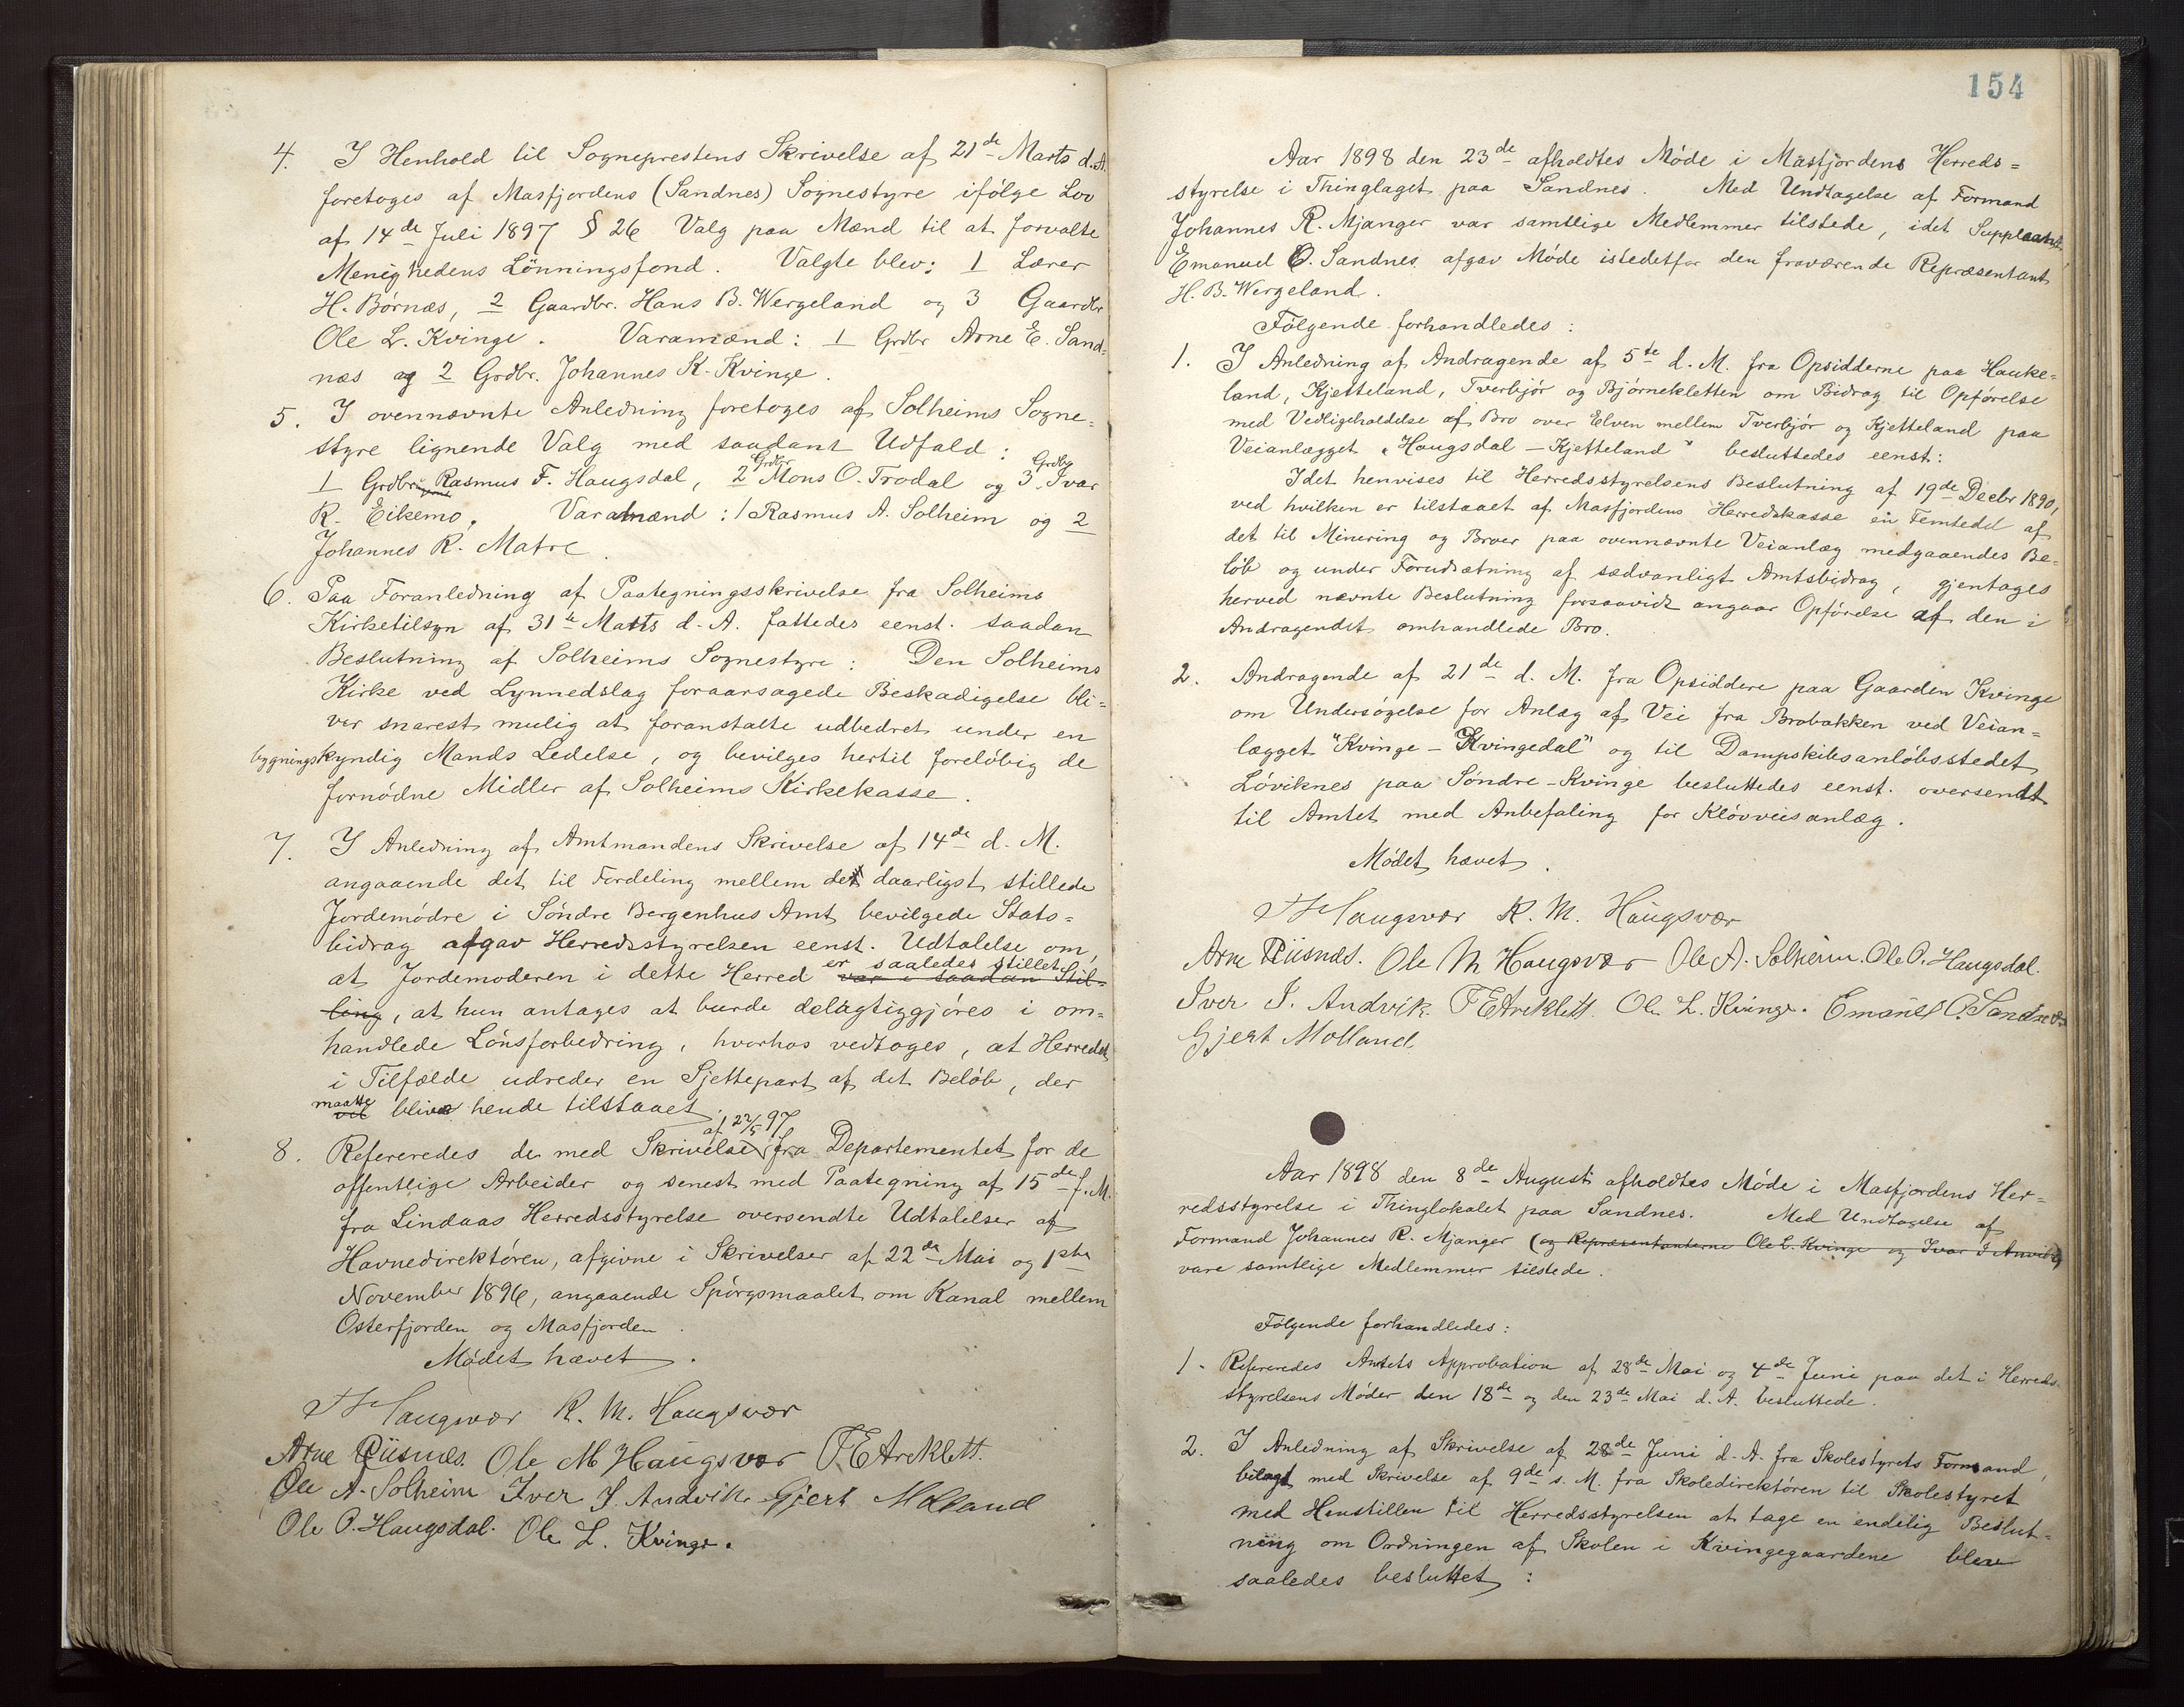 4. I Henhold til Sogneprestens Skrivelse af 21de Marts d. A.
foretoges af Masfjordens (Sandnes) Sognestyre ifølge Lov
af 14de Juli 1897 § 26 Valg paa Mænd til at forvalte
Menighedens Lønningsfond. Valgte blev: 1 Lærer
H. Børnæs, 2 Gaardbr. Hans B. Wergeland og 3 Gaardbr
Ole L. Kvinge. Varamænd: 1 Grdbr Arne E. Sand-
næs og 2 Grdbr. Johannes K. Kvinge.
5. I ovennævnte Anledning foretoges af Solheims Sogne-
styre lignende Valg med saadant Udfald:
1 Grdbr Rasmus F. Haugsdal, 2 Grdbr Mons O. Trodal og 3 Grdbr Ivar
R. Eikemo. Varamænd: 1 Rasmus A. Solheim og 2
Johannes R. Matre.
6. Paa Foranledning af Paategningsskrivelse fra Solheims
Kirketilsyn af 31te Marts d. A. fattedes eenst. saadan
Beslutning af Solheims Sognestyre: Den Solheims
Kirke ved Lynnedslag foraarsagede Beskadigelse bli-
ver snarest mulig at foranstalte udbedret under en
bygningskyndig Mands Ledelse, og bevilges hertil foreløbig de
fornødne Midler af Solheims Kirkekasse.
7. I Anledning af Amtmandens Skrivelse af 14de d. M.
angaaende det til Fordeling mellem de daarligst stillede
Jordemødre i Søndre Bergenhus Amt bevilgede Stats-
bidrag afgav Herredsstyrelsen eenst. Udtalelse om,
at Jordemoderen i dette Herred er saaledes stillet var i saadan Stil-
ling, at hun antages at burde delagtiggjøres i om-
handlede Lønsforbedring, hvorhos vedtoges, at Herredet
i Tilfælde udreder en Sjettepart af det Beløb, der
maatte vil blive hende tilstaaet.
8. Refereredes de med Skrivelse af 22/5 97 fra Departementet for de
offentlige Arbeider og senest med Paategning af 15de f. M.
fra Lindaas Herredsstyrelse oversendte Udtalelser af
Havnedirektøren, afgivne i Skrivelser af 22de Mai og 1ste
November 1896, angaaende Spørgsmaalet om Kanal mellem
Osterfjorden og Masfjorden.
Mødet hævet.
Haugsvær K. M. Haugsvær
Arne Riisnæs. Ole M Haugsvær T E Areklett.
Ole A. Solheim Iver I. Andvik Gjert Molland
Ole O. Haugsdal. Ole L. Kvinge.
154
Aar 1898 den 23de afholdtes Møde i Masfjordens Herreds-
styrelse i Thinglaget paa Sandnes. Med Undtagelse af Formand
Johannes R. Mjanger var samtlige Medlemmer tilstede, idet Suppleant
Emanuel O. Sandnes afgav Møde istedetfor den fraværende Repræsentant
H. B. Wergeland.
Følgende forhandledes:
1. I Anledning af Andragende af 5te d. M. fra Opsidderne paa Hauke-
land, Kjetteland, Tverbjør og Bjørnekletten om Bidrag til Opførelse
med Vedligeholdelse af Bro over Elven mellem Tverbjør og Kjetteland paa
Veianlægget "Haugsdal – Kjetteland" besluttedes eenst:
Idet henvises til Herredsstyrelsens Beslutning af 19de Decbr 1890,
ved hvilken er tilstaaet af Masfjordens Herredskasse en Femtedel af
det til Minering og Broer paa ovennævnte Veianlæg medgaaendes Be-
løb og under Forudsætning af sædvanligt Amtsbidrag, gjentages
herved nævnte Beslutning forsaavidt angaar Opførelse af den i
Andragendet omhandlede Bro.
2. Andragende af 21de d. M. fra Opsiddere paa Gaarden Kvinge
om Undersøgelse for Anlæg af Vei fra Brobakken ved Veian-
lægget "Kvinge – Kvingedal" og til Dampskibsanløbsstedet
Løviknes paa Søndre-Kvinge besluttedes eenst. oversendt
til Amtet med Anbefaling for Kløvveisanlæg.
Mødet hævet.
Haugsvær K. M. Haugsvær
Arne Riisnæs. Ole M Haugsvær Ole A. Solheim. Ole O. Haugsdal.
Iver I. Andvik. T E Areklett. Ole L. Kvinge. Emanuel O. Sandnes
Gjert Molland.
Aar 1898 den 8de August afholdtes Møde i Masfjordens Her-
redsstyrelse i Thinglokalet paa Sandnes. Med Undtagelse af
Formand Johannes R. Mjanger (og Repræsentanterne Ole L. Kvinge og Ivar I Anvik)
vare samtlige Medlemmer tilstede.
Følgende forhandledes:
1. Refereredes Amtets Approbation af 28de Mai og 4de Juni paa det i Herreds-
styrelsens Møder den 18de og den 23de Mai d. A. besluttede.
2. I Anledning af Skrivelse af 28de Juni d. A. fra Skolestyrets Formand,
bilagt med Skrivelse af 9de s. M. fra Skoledirektøren til Skolestyret
med Henstillen til Herredsstyrelsen at tage en endelig Beslut-
ning om Ordningen af Skolen i Kvingegaardene blev
saaledes besluttet: